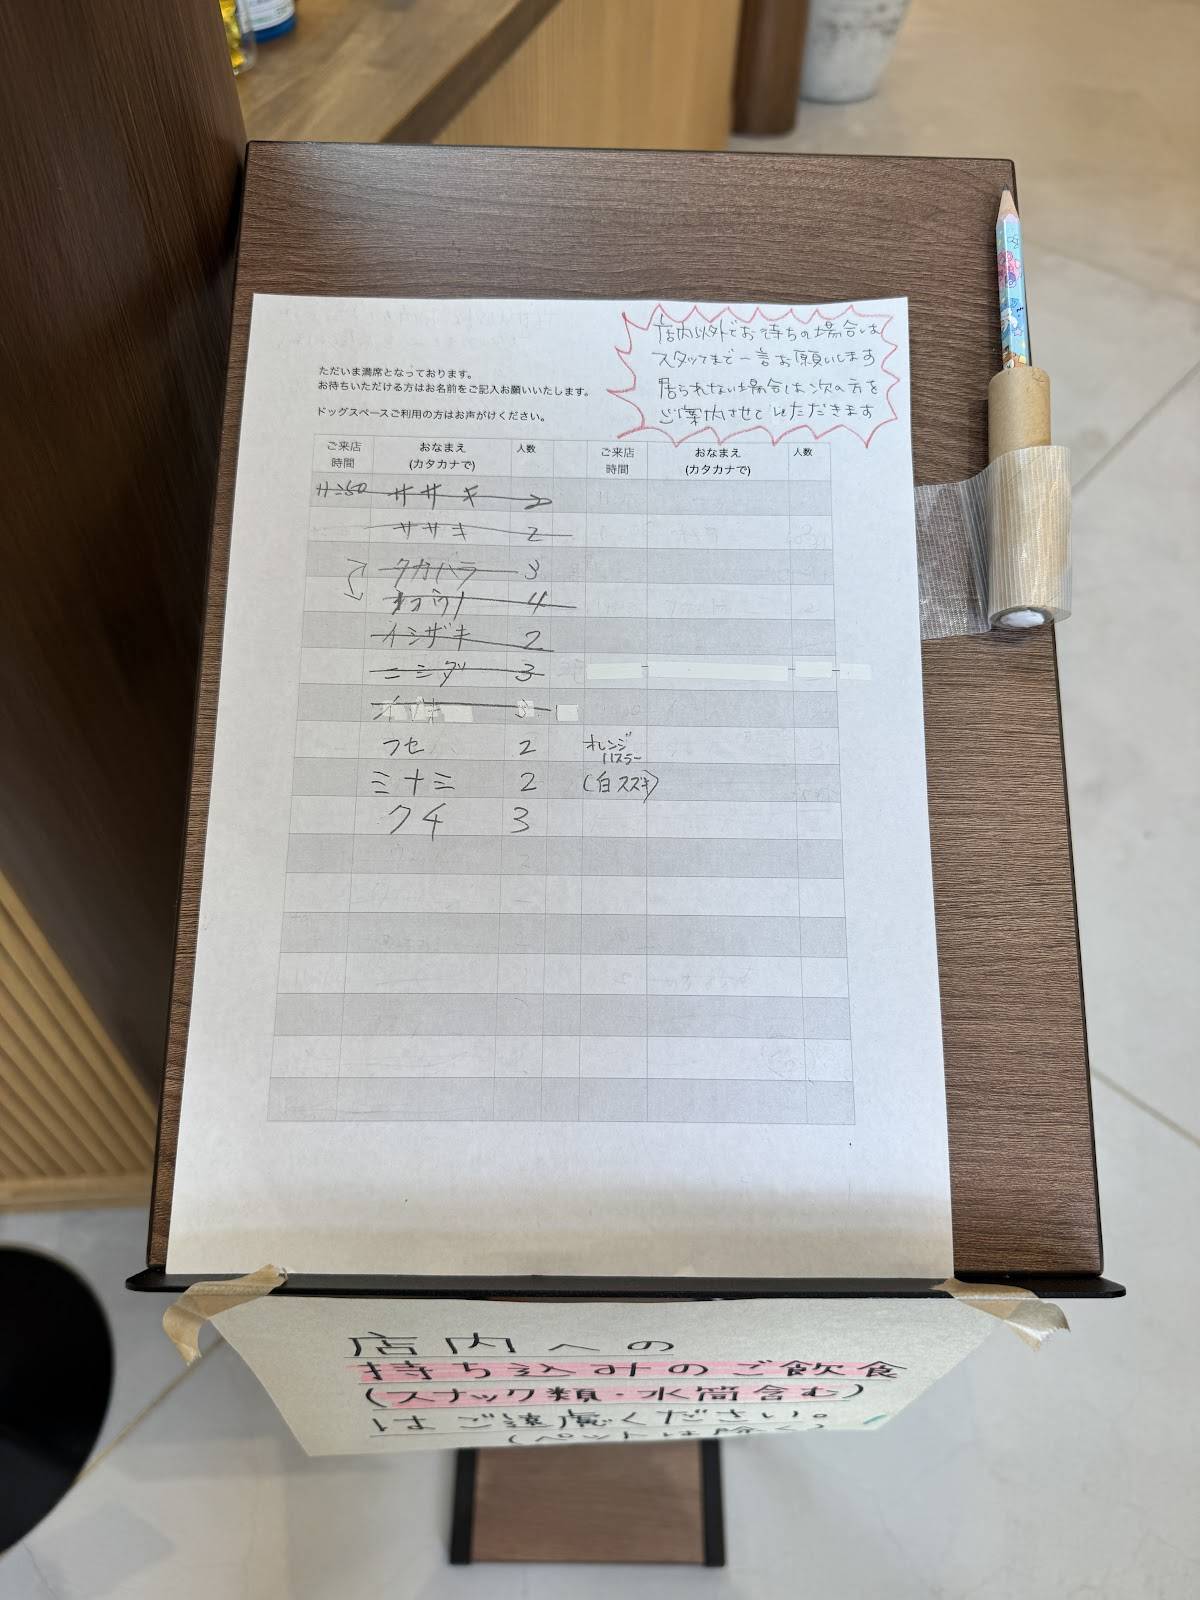 店内以外でお待ちの場合は
スタッフまで一言お願いします
居られない場合は次の方を
ご案内させていただきます
ただいま満席となっております。
お待ちいただける方はお名前をご記入お願いいたします。
ドッグスペースご利用の方はお声がけください。
ご来店時間 おなまえ(カタカナで) 人数 ご来店時間 おなまえ(カタカナで) 人数
ササキ 2
ササキ 2
タカハラ 3
4
イシザキ 2
ニシダ 3
3
フセ 2 オレンジハスラー
ミナミ 2 (白ススキ)
クチ 3
店内への
持ち込みのご飲食
(スナック類・水筒含む)
はご遠慮ください。
(ペットは除く)